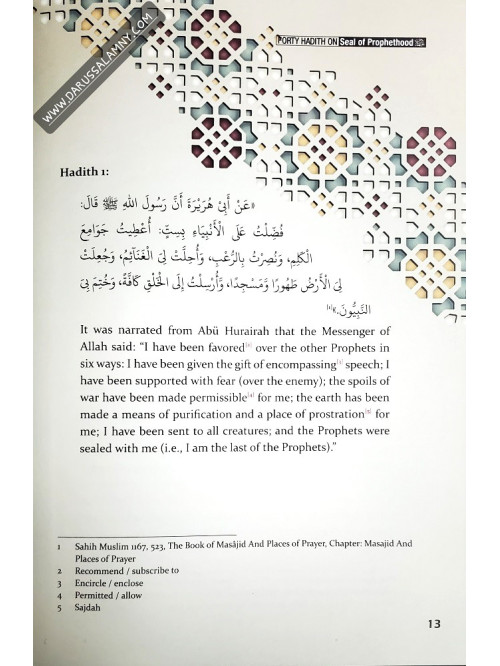 WWW.DARUSSALAMNY.COM
FORTY HADITH ON Seal of Prophethood ﷺ
Hadith 1:
«عَنْ أَبِيْ هُرَيْرَةَ أَنَّ رَسُولَ اللهِ ﷺ قَالَ:
فُضِّلْتُ عَلَى الْأَنْبِيَاءِ بِسِتٍّ: أُعْطِيتُ جَوَامِعَ
الْكَلِمِ، وَنُصِرْتُ بِالرُّعْبِ، وَأُحِلَّتْ لِيَ الْغَنَآئِمُ، وَجُعِلَتْ
لِيَ الْأَرْضُ طَهُورًا وَمَسْجِدًا، وَأُرْسِلْتُ إِلَى الْخَلْقِ كَآفَّةً، وَخُتِمَ بِيَ
النَّبِيُّونَ.»[1]
It was narrated from Abū Hurairah that the Messenger of
Allah said: “I have been favored[2] over the other Prophets in
six ways: I have been given the gift of encompassing[3] speech; I
have been supported with fear (over the enemy); the spoils of
war have been made permissible[4] for me; the earth has been
made a means of purification and a place of prostration[5] for
me; I have been sent to all creatures; and the Prophets were
sealed with me (i.e., I am the last of the Prophets).”
1 Sahih Muslim 1167, 523, The Book of Masājid And Places of Prayer, Chapter: Masajid And
Places of Prayer
2 Recommend / subscribe to
3 Encircle / enclose
4 Permitted / allow
5 Sajdah
13